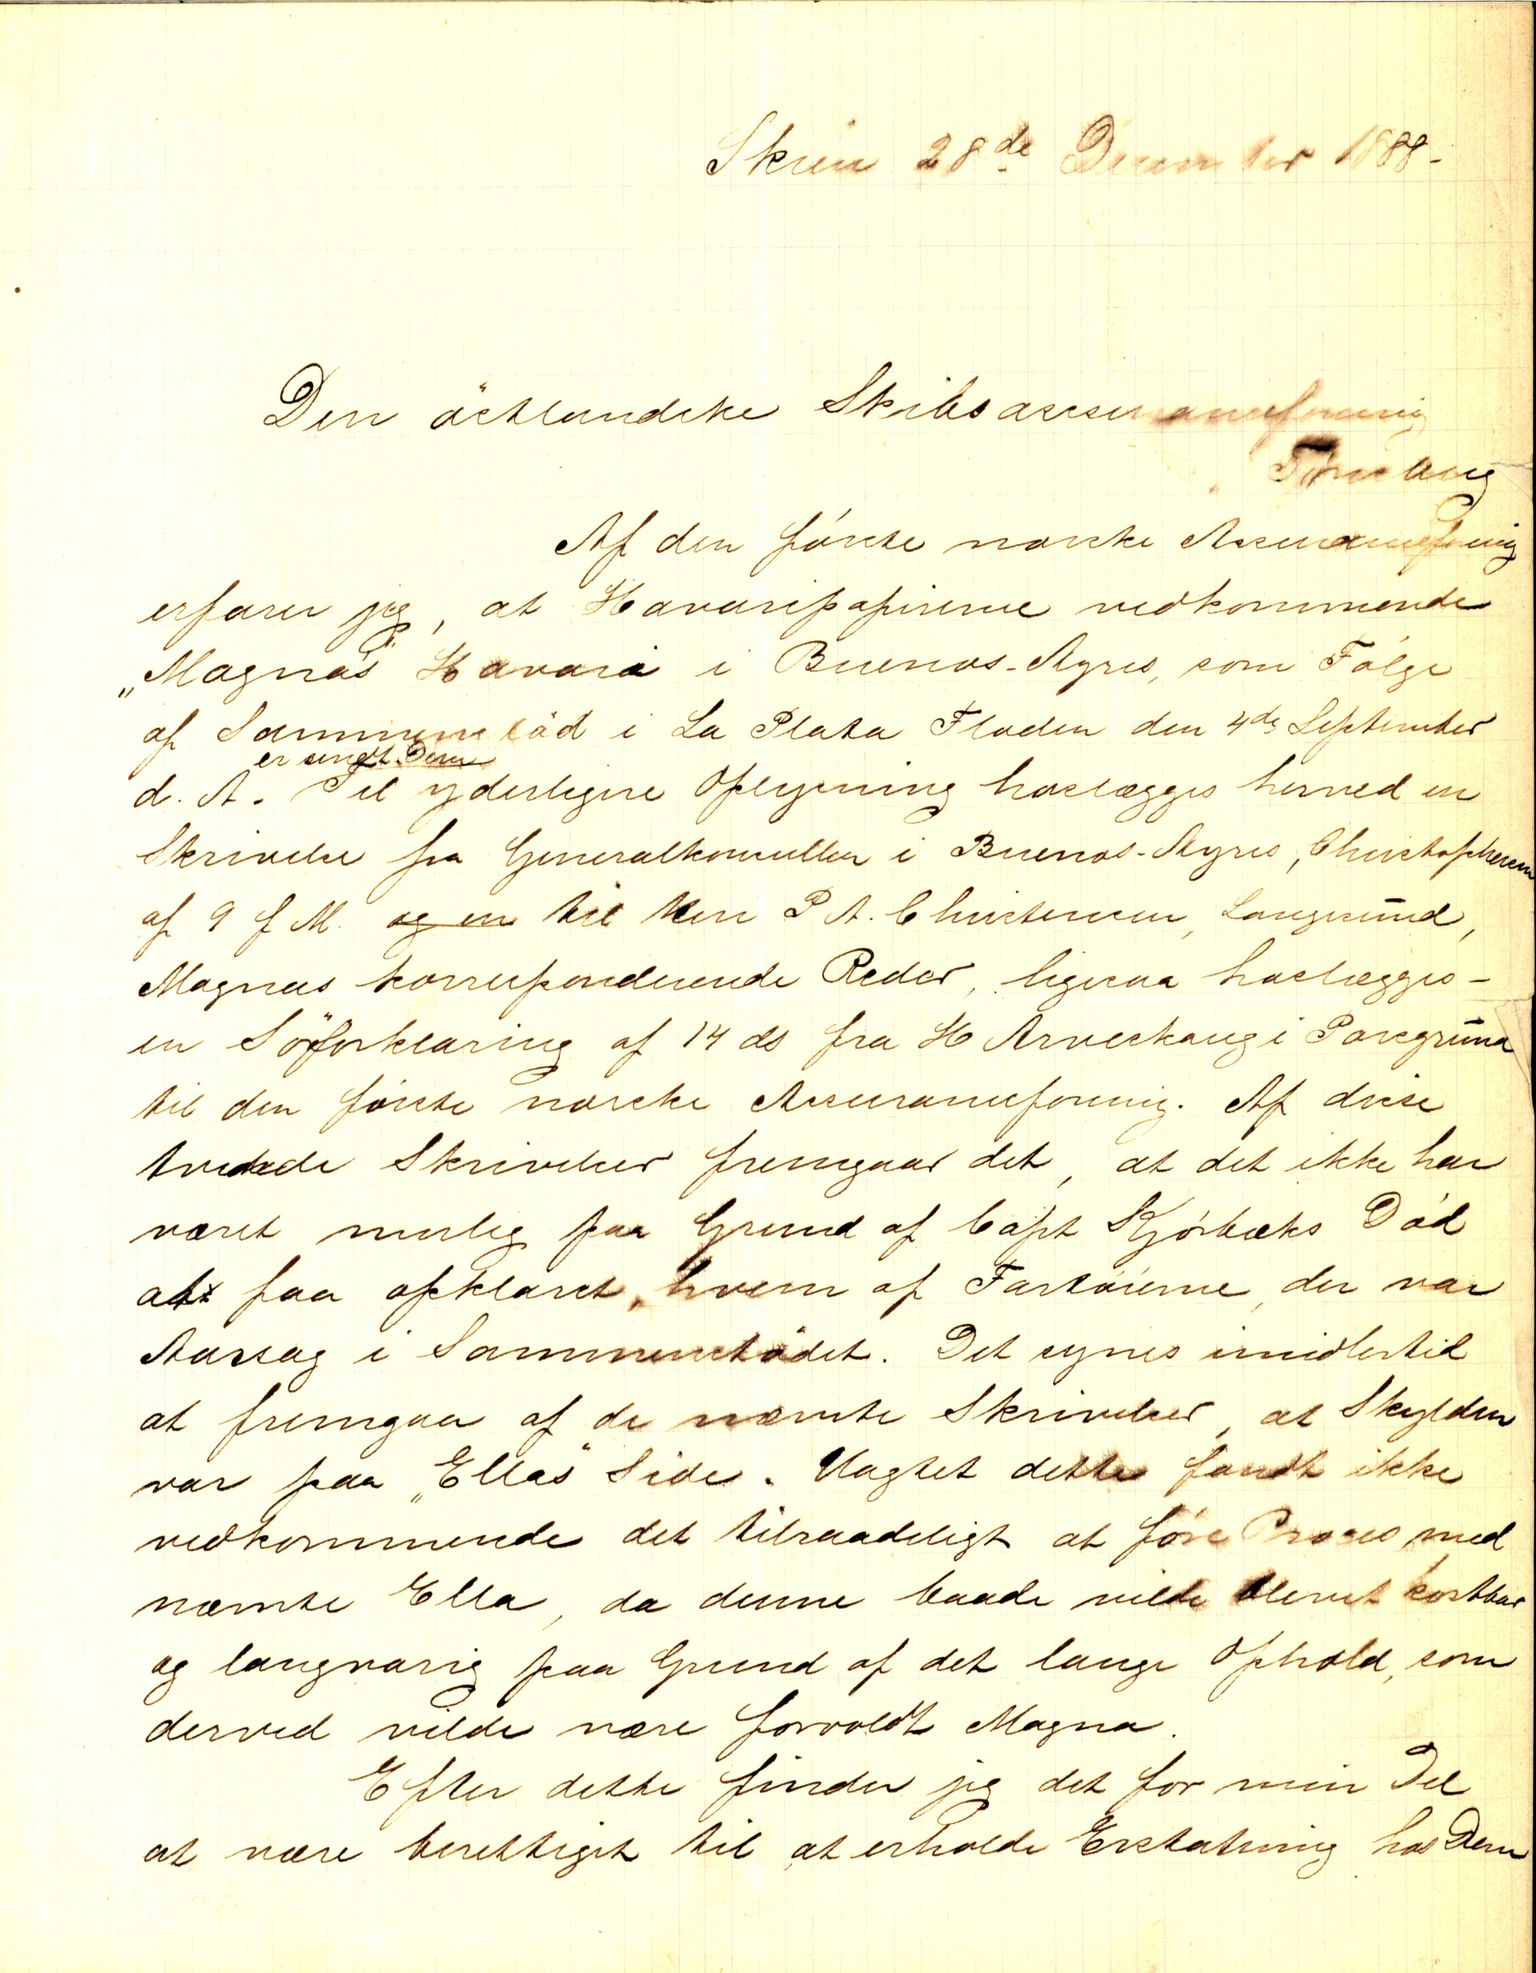 Skien 28de December 1888-
Den östlandske Skibsassuranceforening
Tönsberg
Af den förste norske Assuranceforening
erfarer jeg, at Havaripapirerne vedkommende
„Magnas" Havari i Buenos-Ayres, som Følge
af Sammenstöd i La Plata Floden den 4de September
er sendt Dem
d. A. Til yderligere Oplysning hoslægges herved en
Skrivelse fra Generalkonsullen i Buenos-Ayres, Christophersen
af 9 f M. og en til Herr P A. Christensen, Langesund,
Magnas korresponderende Reder, ligesaa hoslægges-
en Söforklaring af 14 ds fra H Arveskoug i Porsgrund
til den förste norske Assuranceforening. Af disse
tvende Skrivelser fremgaar det, at det ikke har
været mulig paa Grund af Capt Kjörbæks Död
at faa opklaret, hvem af Fartöierne, der var
Aarsag i Sammenstödet. Det synes imidlertid
at fremgaa af de nævnte Skrivelser, at Skylden
var paa „Ellas" Side. Uagtet dette fandt ikke
vedkommende det tilraadeligt at före Proces med
nævnte Ella, da denne baade vilde blevet kostbar
og langvarig paa Grund af det lange Ophold, som
derved vilde være forvoldt Magna.
Efter dette finder jeg det for min Del
at være berettiget til at erholde Erstatning hos Dem